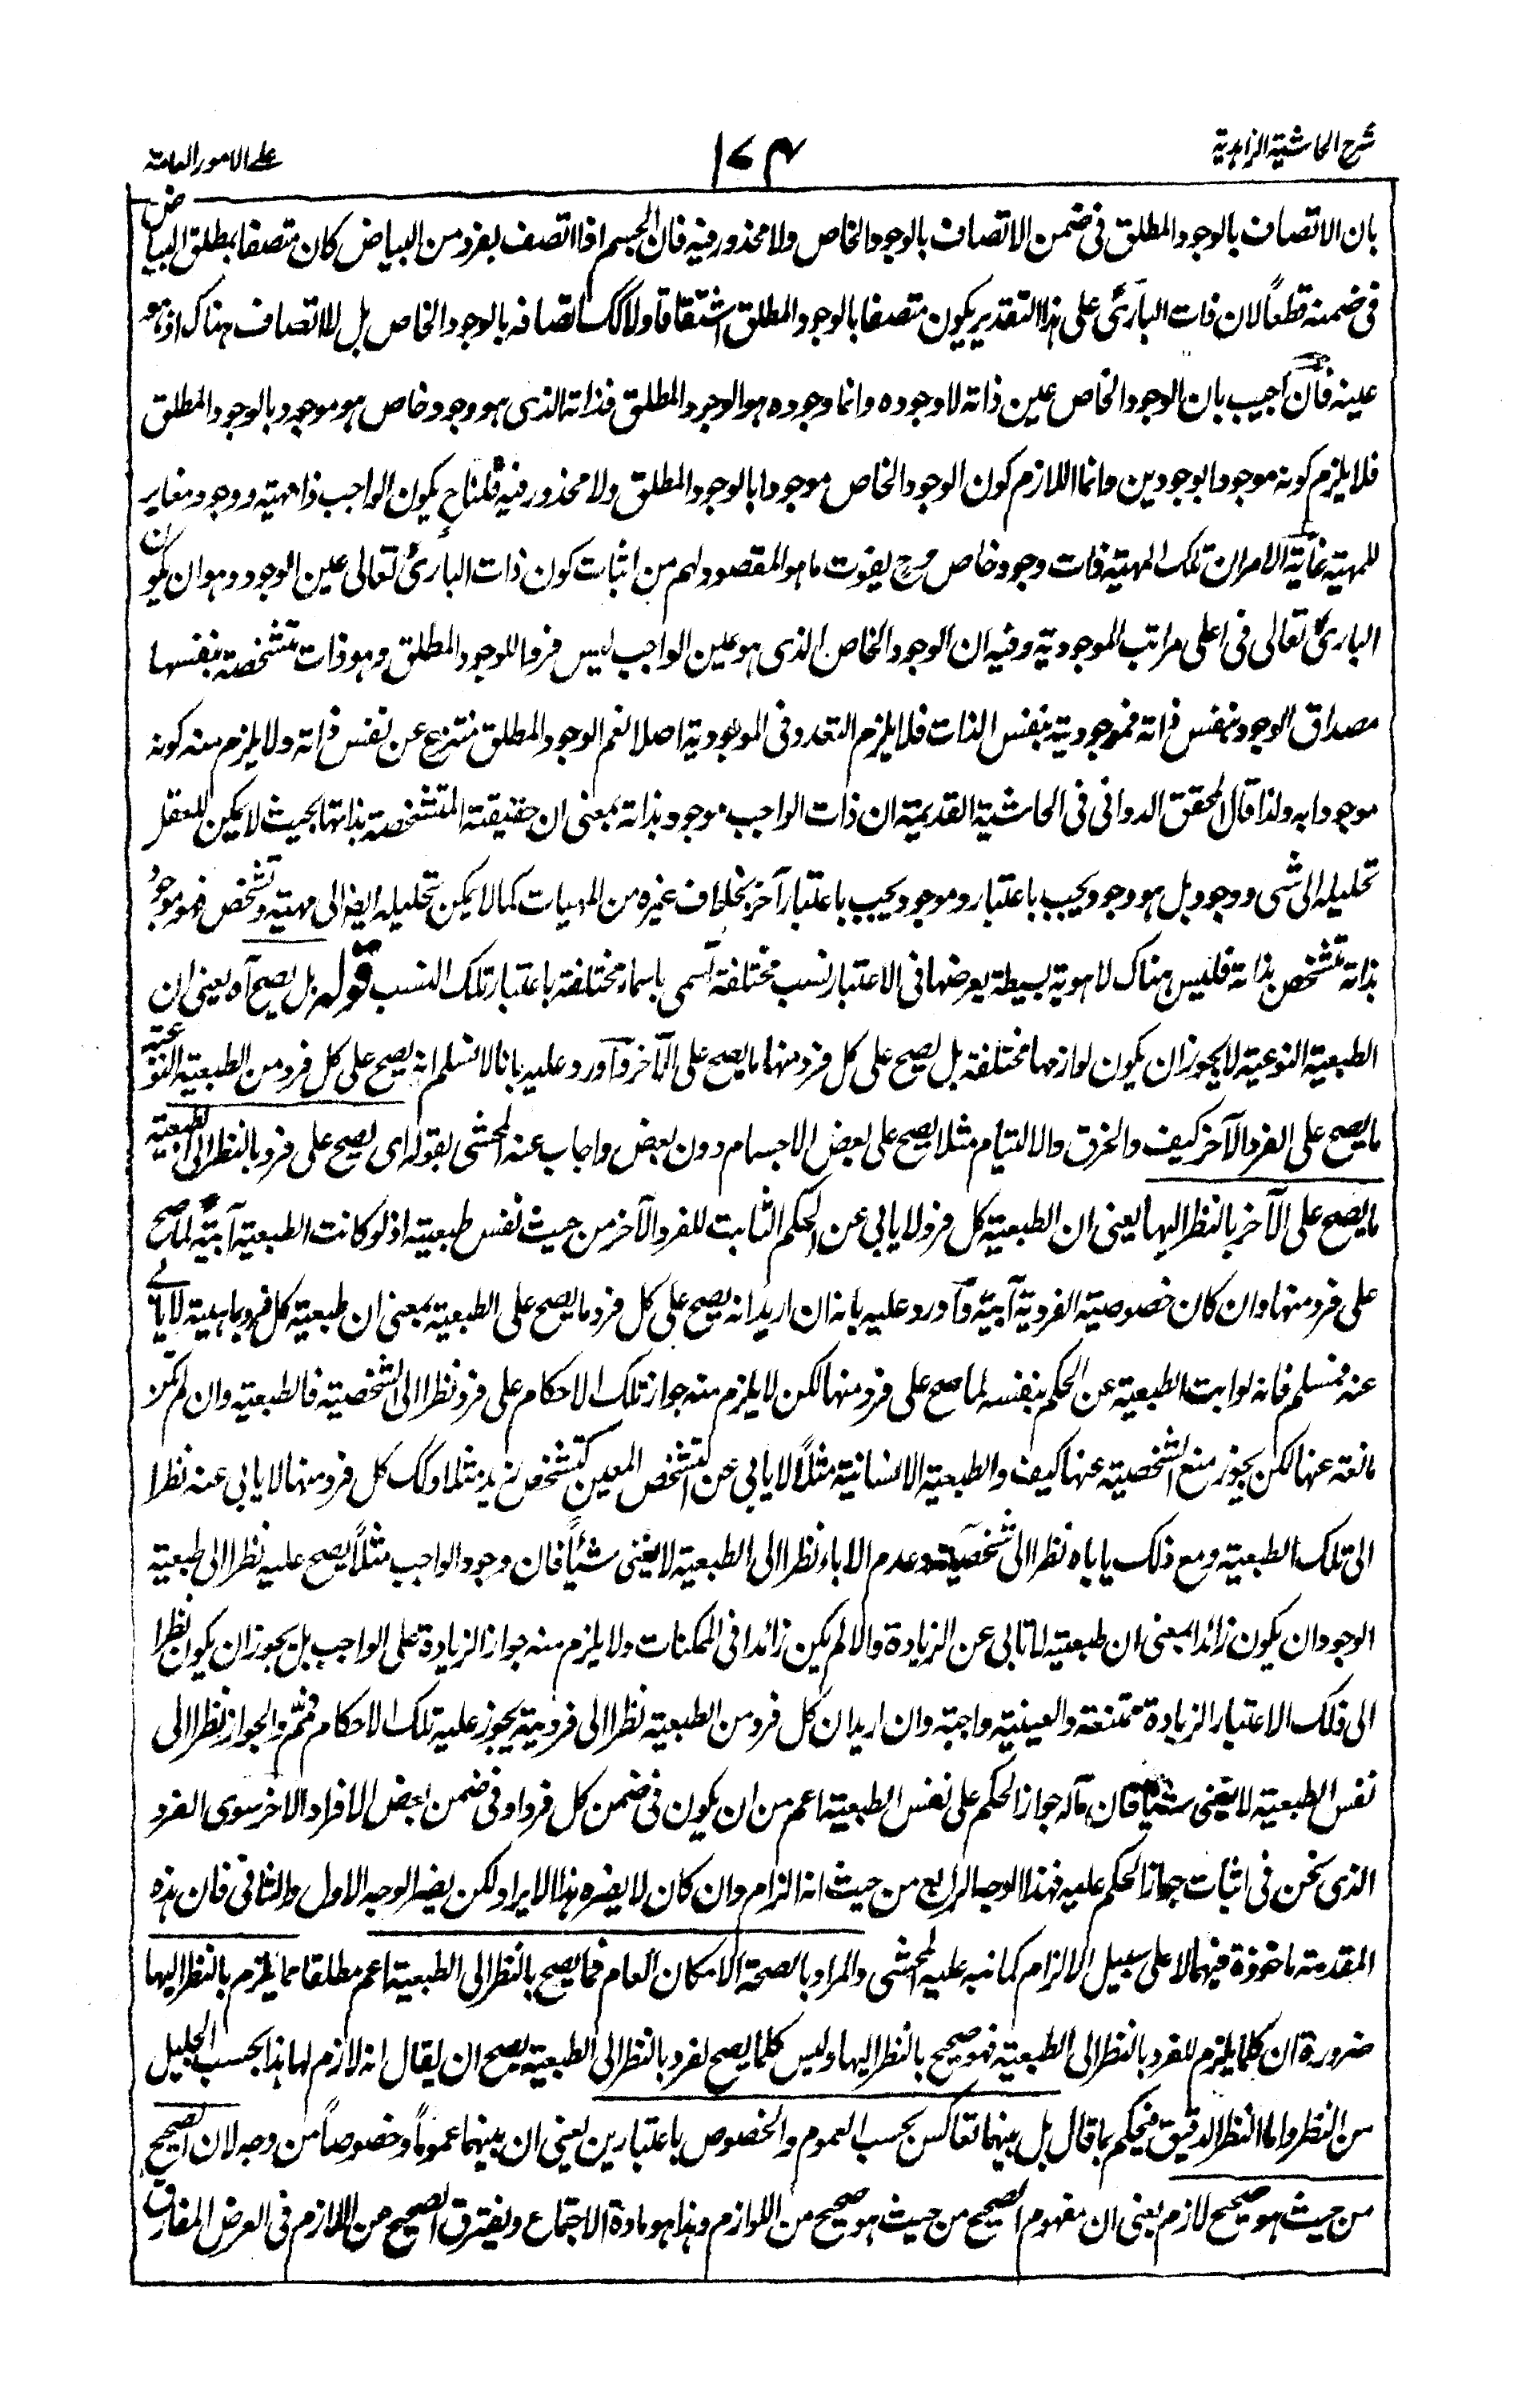 شرح الحاشية الزاهدية
۱۷۴
على الامور العامة
بان الاتصاف بالوجود المطلق فى ضمن الاتصاف بالوجود الخاص ولا محذور فيه فان الجسم اذا اتصف بفرد من البياض كان متصفا بمطلق البياض
فى ضمنه قطعاً لان ذات البارئ على هذا التقدير يكون متصفا بالوجود المطلق اشتقاقا ولا كك اتصافه بالوجود الخاص بل لا اتصاف هناك اذ هو
عينه فان اجيب بان الوجود الخاص عين ذاته لا وجوده وانما وجوده هو الوجود المطلق فذاته الذى هو وجود خاص هو موجود بالوجود المطلق
فلا يلزم كونه موجودا بوجودين وانما اللازم كون الوجود الخاص موجودا بالوجود المطلق ولا محذور فيه قلنا ح يكون الواجب ذا مهية ووجود مغاير
للمهية غاية الامر ان تلك المهية ذات وجود خاص وح يفوت ما هو المقصود لهم من اثبات كون ذات البارئ تعالى عين الوجود وهو ان يكون
البارئ تعالى فى اعلى مراتب الموجودية وفيه ان الوجود الخاص الذى هو عين الواجب ليس فردا للوجود المطلق وهو ذات متشخصة بنفسها
مصداق الوجود بنفس ذاته فموجودية بنفس الذات فلا يلزم التعدد فى الموجودية اصلا نعم الوجود المطلق منتزع عن نفس ذاته ولا يلزم منه كونه
موجودا به ولذا قال المحقق الدوانى فى الحاشية القديمة ان ذات الواجب موجود بذاته بمعنى ان حقيقته المتشخصة بذاتها بحيث لا يمكن للعقل
تحليله الى شى ووجود بل هو وجود يحب باعتبار وموجود يحب باعتبار آخر بخلاف غيره من المهيات كما لا يمكن تحليله ايضا الى مهية وتشخص فهو موجود
بذاته متشخص بذاته فليس هناك الا هوية بسيطة يعرضها فى الاعتبار نسب مختلفة تسمى باسماء مختلفة باعتبار تلك النسب قوله بل يصح آه يعنى ان
الطبعية النوعية لا يجوز ان يكون لوازمها مختلفة بل يصح على كل فرد منها ما يصح على الآخر وآورد عليه بانا لا نسلم انه يصح على كل فرد من الطبعية النوعية
ما يصح على الفرد الآخر كيف والخرق والالتيام مثلا يصح على بعض الاجسام دون بعض واجاب عنه المحشى بقوله اى يصح على فرد بالنظر الى الطبعية
ما يصح على الآخر بالنظر اليها يعنى ان الطبعية كل فرد لا يابى عن الحكم الثابت للفرد الآخر من حيث نفس طبعية اذ لو كانت الطبعية آبية لما صح
على فرد منها وان كان خصوصية الفردية آبية وآورد عليه بانه ان اريد انه يصح على كل فرد ما يصح على الطبعية بمعنى ان طبعية كل فرد بما هية لا يابى
عنه فمسلم فانه لو ابت الطبعية عن الحكم بنفسه لما صح على فرد منها لكن لا يلزم منه جواز تلك الاحكام على فرد نظرا الى الشخصية فالطبعية وان لم تكن
مانعة عنها لكن يجوز منع الشخصية عنها كيف والطبعية الانسانية مثلاً لا يابى عن التشخص المعين كتشخص زيد مثلا وكك كل فرد منها لا يابى عنه نظرا
الى تلك الطبعية ومع ذلك ياباه نظرا الى شخصية وعدم الاباء نظرا الى الطبعية لا يغنى شيئاً فان وجود الواجب مثلاً يصح عليه نظرا الى طبعية
الوجود ان يكون زائدا بمعنى ان طبعية لا تابى عن الزيادة والا لم يكن زائدا فى الممكنات ولا يلزم منه جواز الزيادة على الواجب بل يجوز ان يكون نظرا
الى ذلك الاعتبار الزيادة ممتنعة والعينية واجبة وان اريد ان كل فرد من الطبعية نظرا الى فردية يجوز عليه تلك الاحكام فمم والجواز نظرا الى
نفس الطبعية لا يغنى شيئا فان مآله جواز الحكم على نفس الطبعية اعم من ان يكون فى ضمن كل فرد او فى ضمن بعض الافراد الاخر سوى الفرد
الذى نحن فى اثبات جواز الحكم عليه فهذا الوجه الرابع من حيث انه الزام وان كان لا يضره هذا الايراد لكن يضر الوجه الاول والثانى فان هذه
المقدمة ماخوذة فيهما لا على سبيل الالزام كما نبه عليه المحشى والمراد بالصحة الامكان العام فما يصح بالنظر الى الطبعية اعم مطلقا مما يلزم بالنظر اليها
ضرورة ان كلما يلزم للفرد بالنظر الى الطبعية فهو صحيح بالنظر اليها وليس كلما يصح لفرد بالنظر الى الطبعية يصح ان يقال انه لازم لها هذا بحسب الجليل
من النظر واما النظر الدقيق فيحكم بما قال بل بينهما تعاكس بحسب العموم والخصوص باعتبارين يعنى ان بينهما عموماً وخصوصاً من وجه لان الصحيح
من حيث هو صحيح لازم بمعنى ان مفهوم الصحيح من حيث هو صحيح من اللوازم وهذا هو مادة الاجتماع ويفترق الصحيح من اللازم فى العرض المفارق